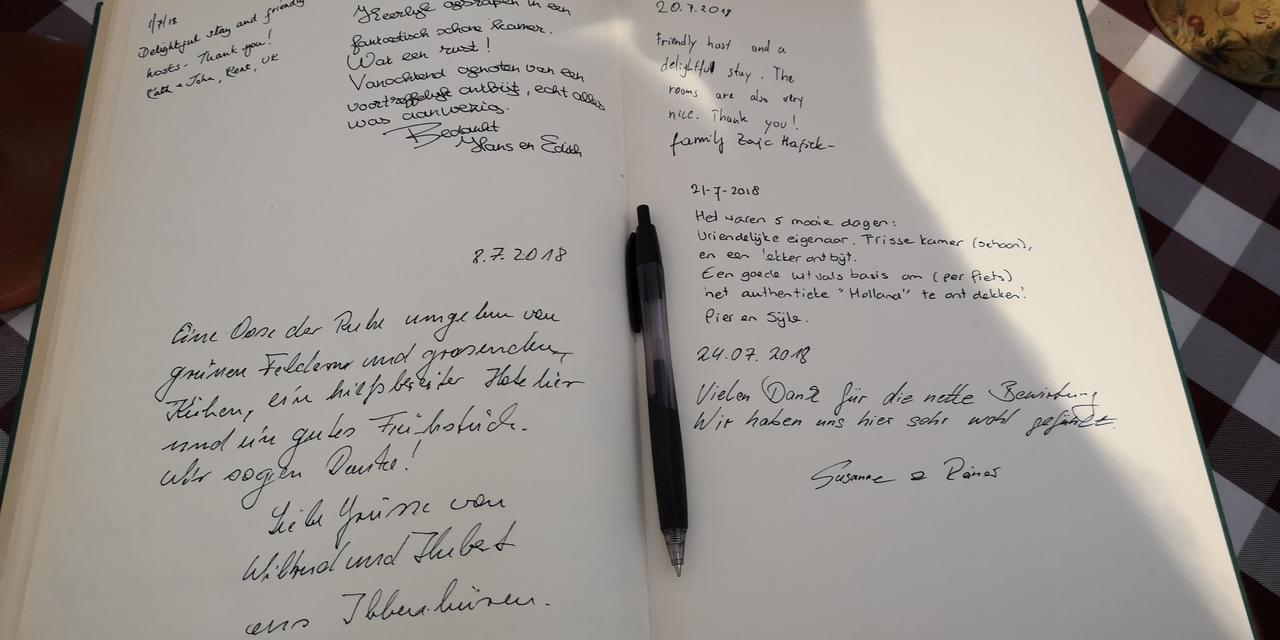 1/7/18
Delightful stay and friendly
hosts - Thank you!
Kath + John, Kent, UK
Heerlijk geslapen in een
fantastisch schone kamer.
Wat een rust!
Vanochtend genoten van een
voortreffelijk ontbijt, echt alles
was aanwezig.
Bedankt
Hans en Edith
8.7.2018
Eine Oase der Ruhe umgeben von
grünen Feldern und grasenden
Kühen, ein hilfsbereiter
und ein gutes Frühstück.
Wir sagen Danke!
Liebe Grüsse von
Wiltrud und Hubert
aus Ibbenbüren.
20.7.2018
Friendly host and a
delightful stay. The
rooms are also very
nice. Thank you!
family Zajc
21-7-2018
Het waren 5 mooie dagen:
Vriendelijke eigenaar. Frisse kamer (schoon),
en een lekker ontbijt.
Een goede uitvals basis om (per fiets)
het authentieke "Holland" te ontdekken!
Pier en Sijke.
24.07.2018
Vielen Dank für die nette Bewirtung
Wir haben uns hier sehr wohl gefühlt.
Susanne & Rainer